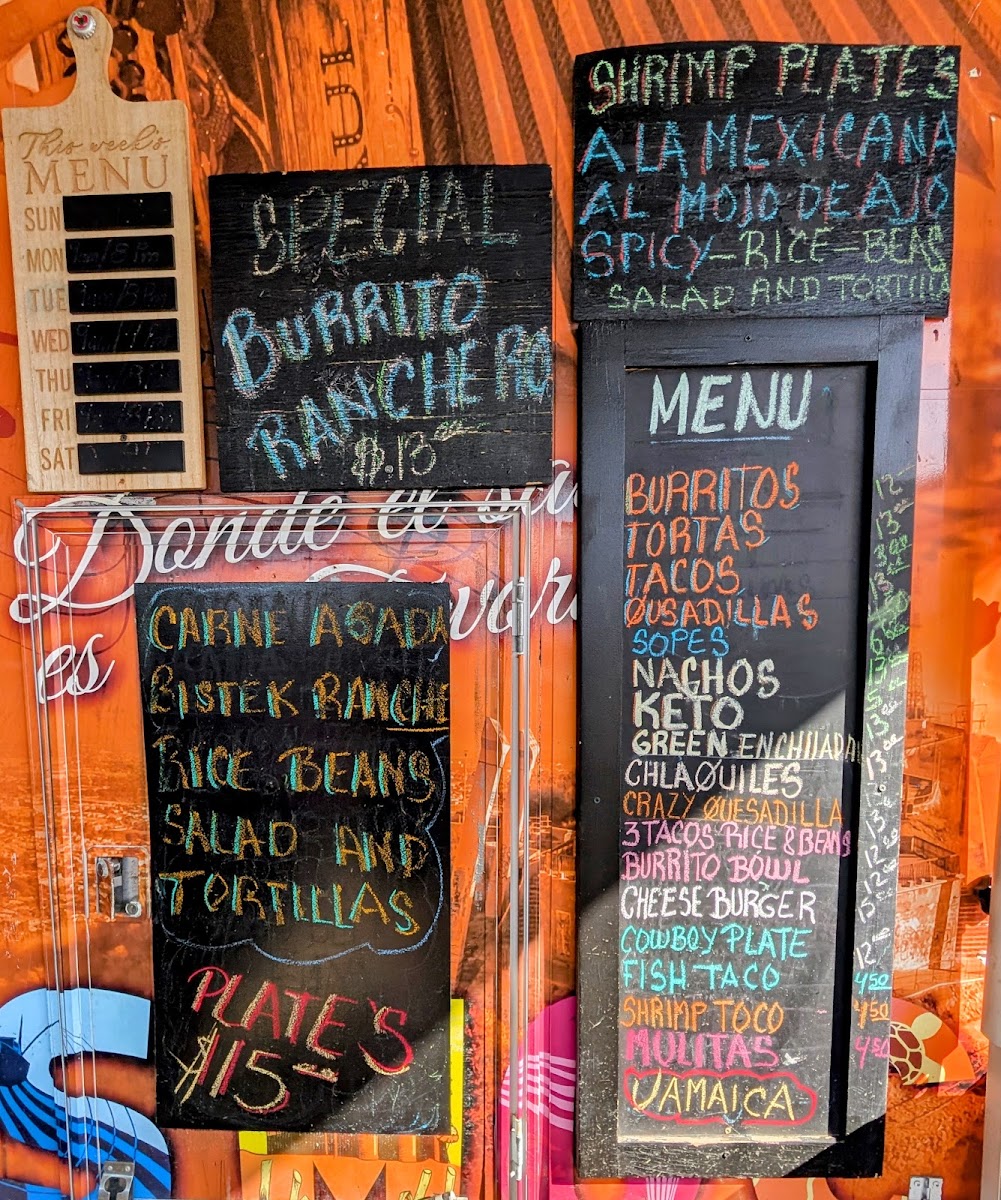 This week's
MENU
SUN
MON
TUE
WED
THU
FRI
SAT
SPECIAL
BURRITO
RANCHERO
$.13.00
SHRIMP PLATE'S
A LA MEXICANA
AL MOJO DE AJO
SPICY-RICE-BEAS
SALAD AND TORTILLA
Donde el
es
CARNE ASADA
BISTEK RANCHE
RICE BEANS
SALAD AND
TORTILLAS
PLATE'S
$15
MENU
BURRITOS 12
TORTAS 13
TACOS 3
QUSADILLAS 13
SOPES 6
NACHOS 13
KETO 15
GREEN ENCHIIADA 13
CHLAQUILES 13
CRAZY QUESADILLA
3 TACOS RICE & BEANS 13
BURRITO BOWL 12
CHEESE BURGER 12
COWBOY PLATE 15
FISH TACO 4.50
SHRIMP TOCO 4.50
MULITAS 4.50
JAMAICA